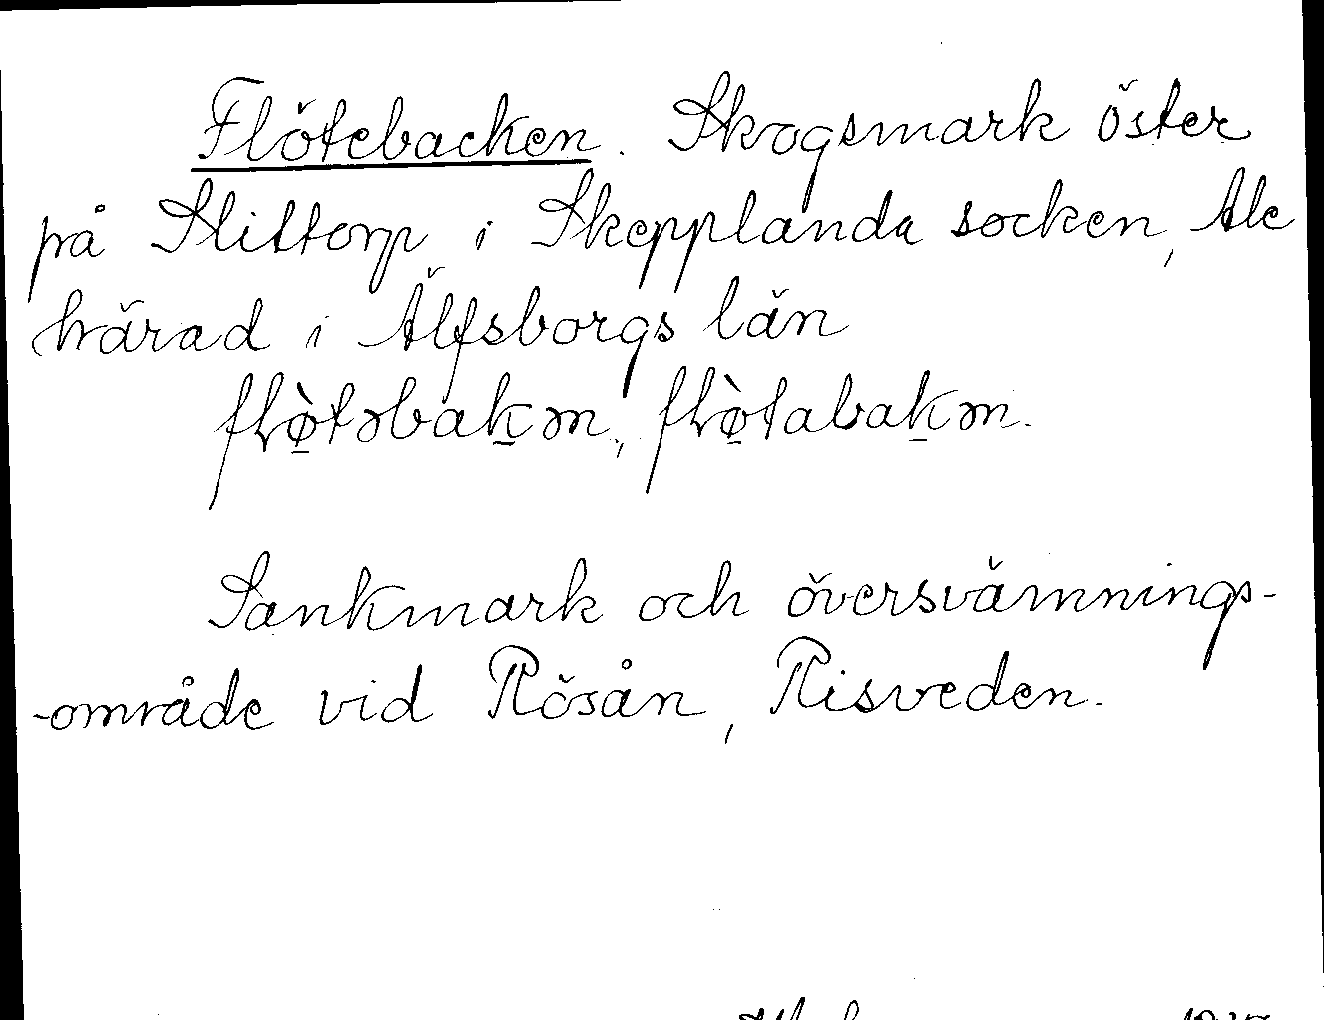 Flötebacken. Skogsmark öster
på Slittorp i Skepplanda socken, Ale
härad i Älfsborgs län
flø̠̀təbak̠ən, flø̠̀tabak̠ən.
Sankmark och översvämnings-
-område vid Rösån, Risveden.